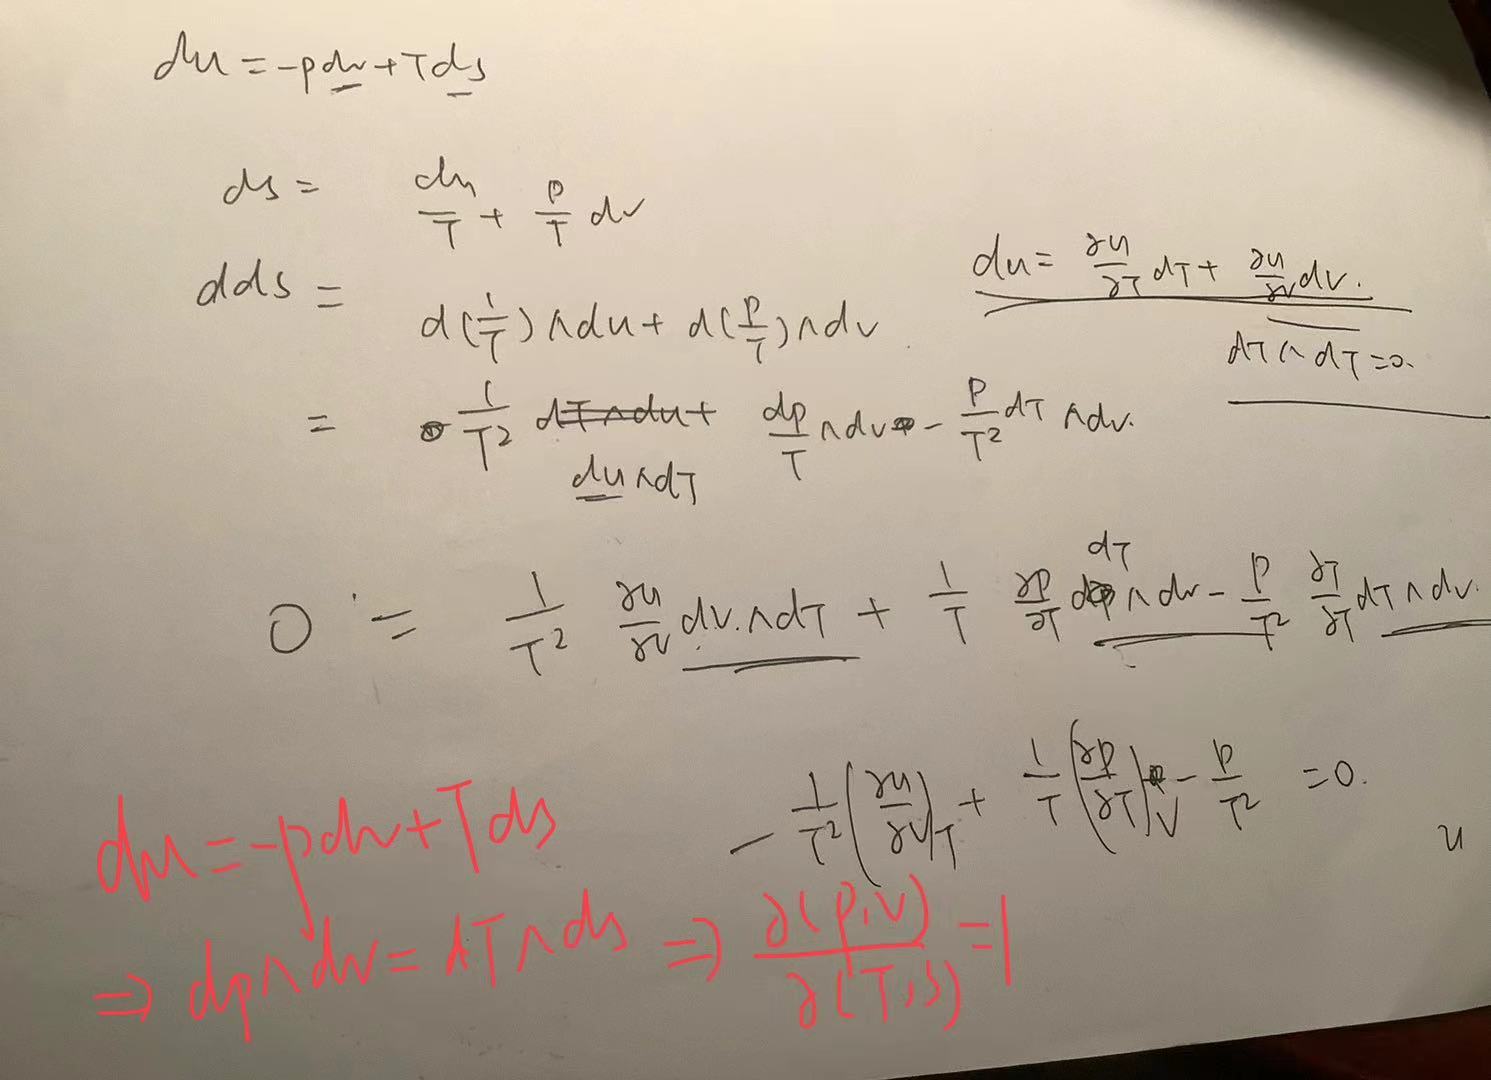 du = -pdv + Tds
ds = du/T + p/T dv
dds = d(1/T)∧du + d(p/T)∧dv
du = ∂u/∂T dT + ∂u/∂v dv.
dT∧dT=0.
= 1/T² dT∧du + dp/T ∧dv - p/T² dT∧dv.
du∧dT
dT
0 = 1/T² ∂u/∂v dv.∧dT + 1/T ∂p/∂T dp∧dv - p/T² ∂T/∂T dT∧dv.
-1/T² (∂u/∂v)_T + 1/T (∂p/∂T)_V - p/T² = 0.
u
du = -pdv + Tds
⇒ dp∧dv = dT∧ds ⇒ ∂(p,v)/∂(T,s) = 1